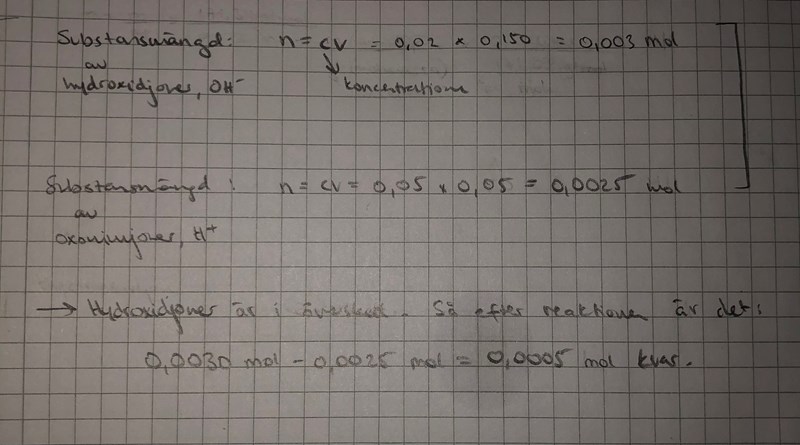 Substansmängd: n = cv = 0,02 × 0,150 = 0,003 mol
av
hydroxidjoner, OH⁻ koncentrationen
Substansmängd: n = cv = 0,05 × 0,05 = 0,0025 mol
av
oxoniumjoner, H⁺
→ Hydroxidjoner är i överskott. Så efter reaktionen är det:
0,0030 mol - 0,0025 mol = 0,0005 mol kvar.